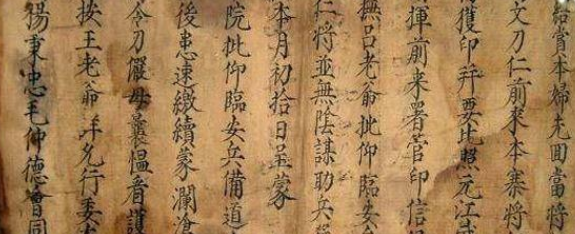 給賞本婦克回當將
文刀仁前來本寨將
獲印幷要比照元江
揮前来署官印信
撫呂老爺批仰臨安
仁將並無陰謀助兵
本月初拾日呈蒙
院批仰臨安兵備道
後患速繳續蒙瀾滄
令刀儼母曩愠者護
按王老爺幷允行委
楊秉忠毛仲德會同